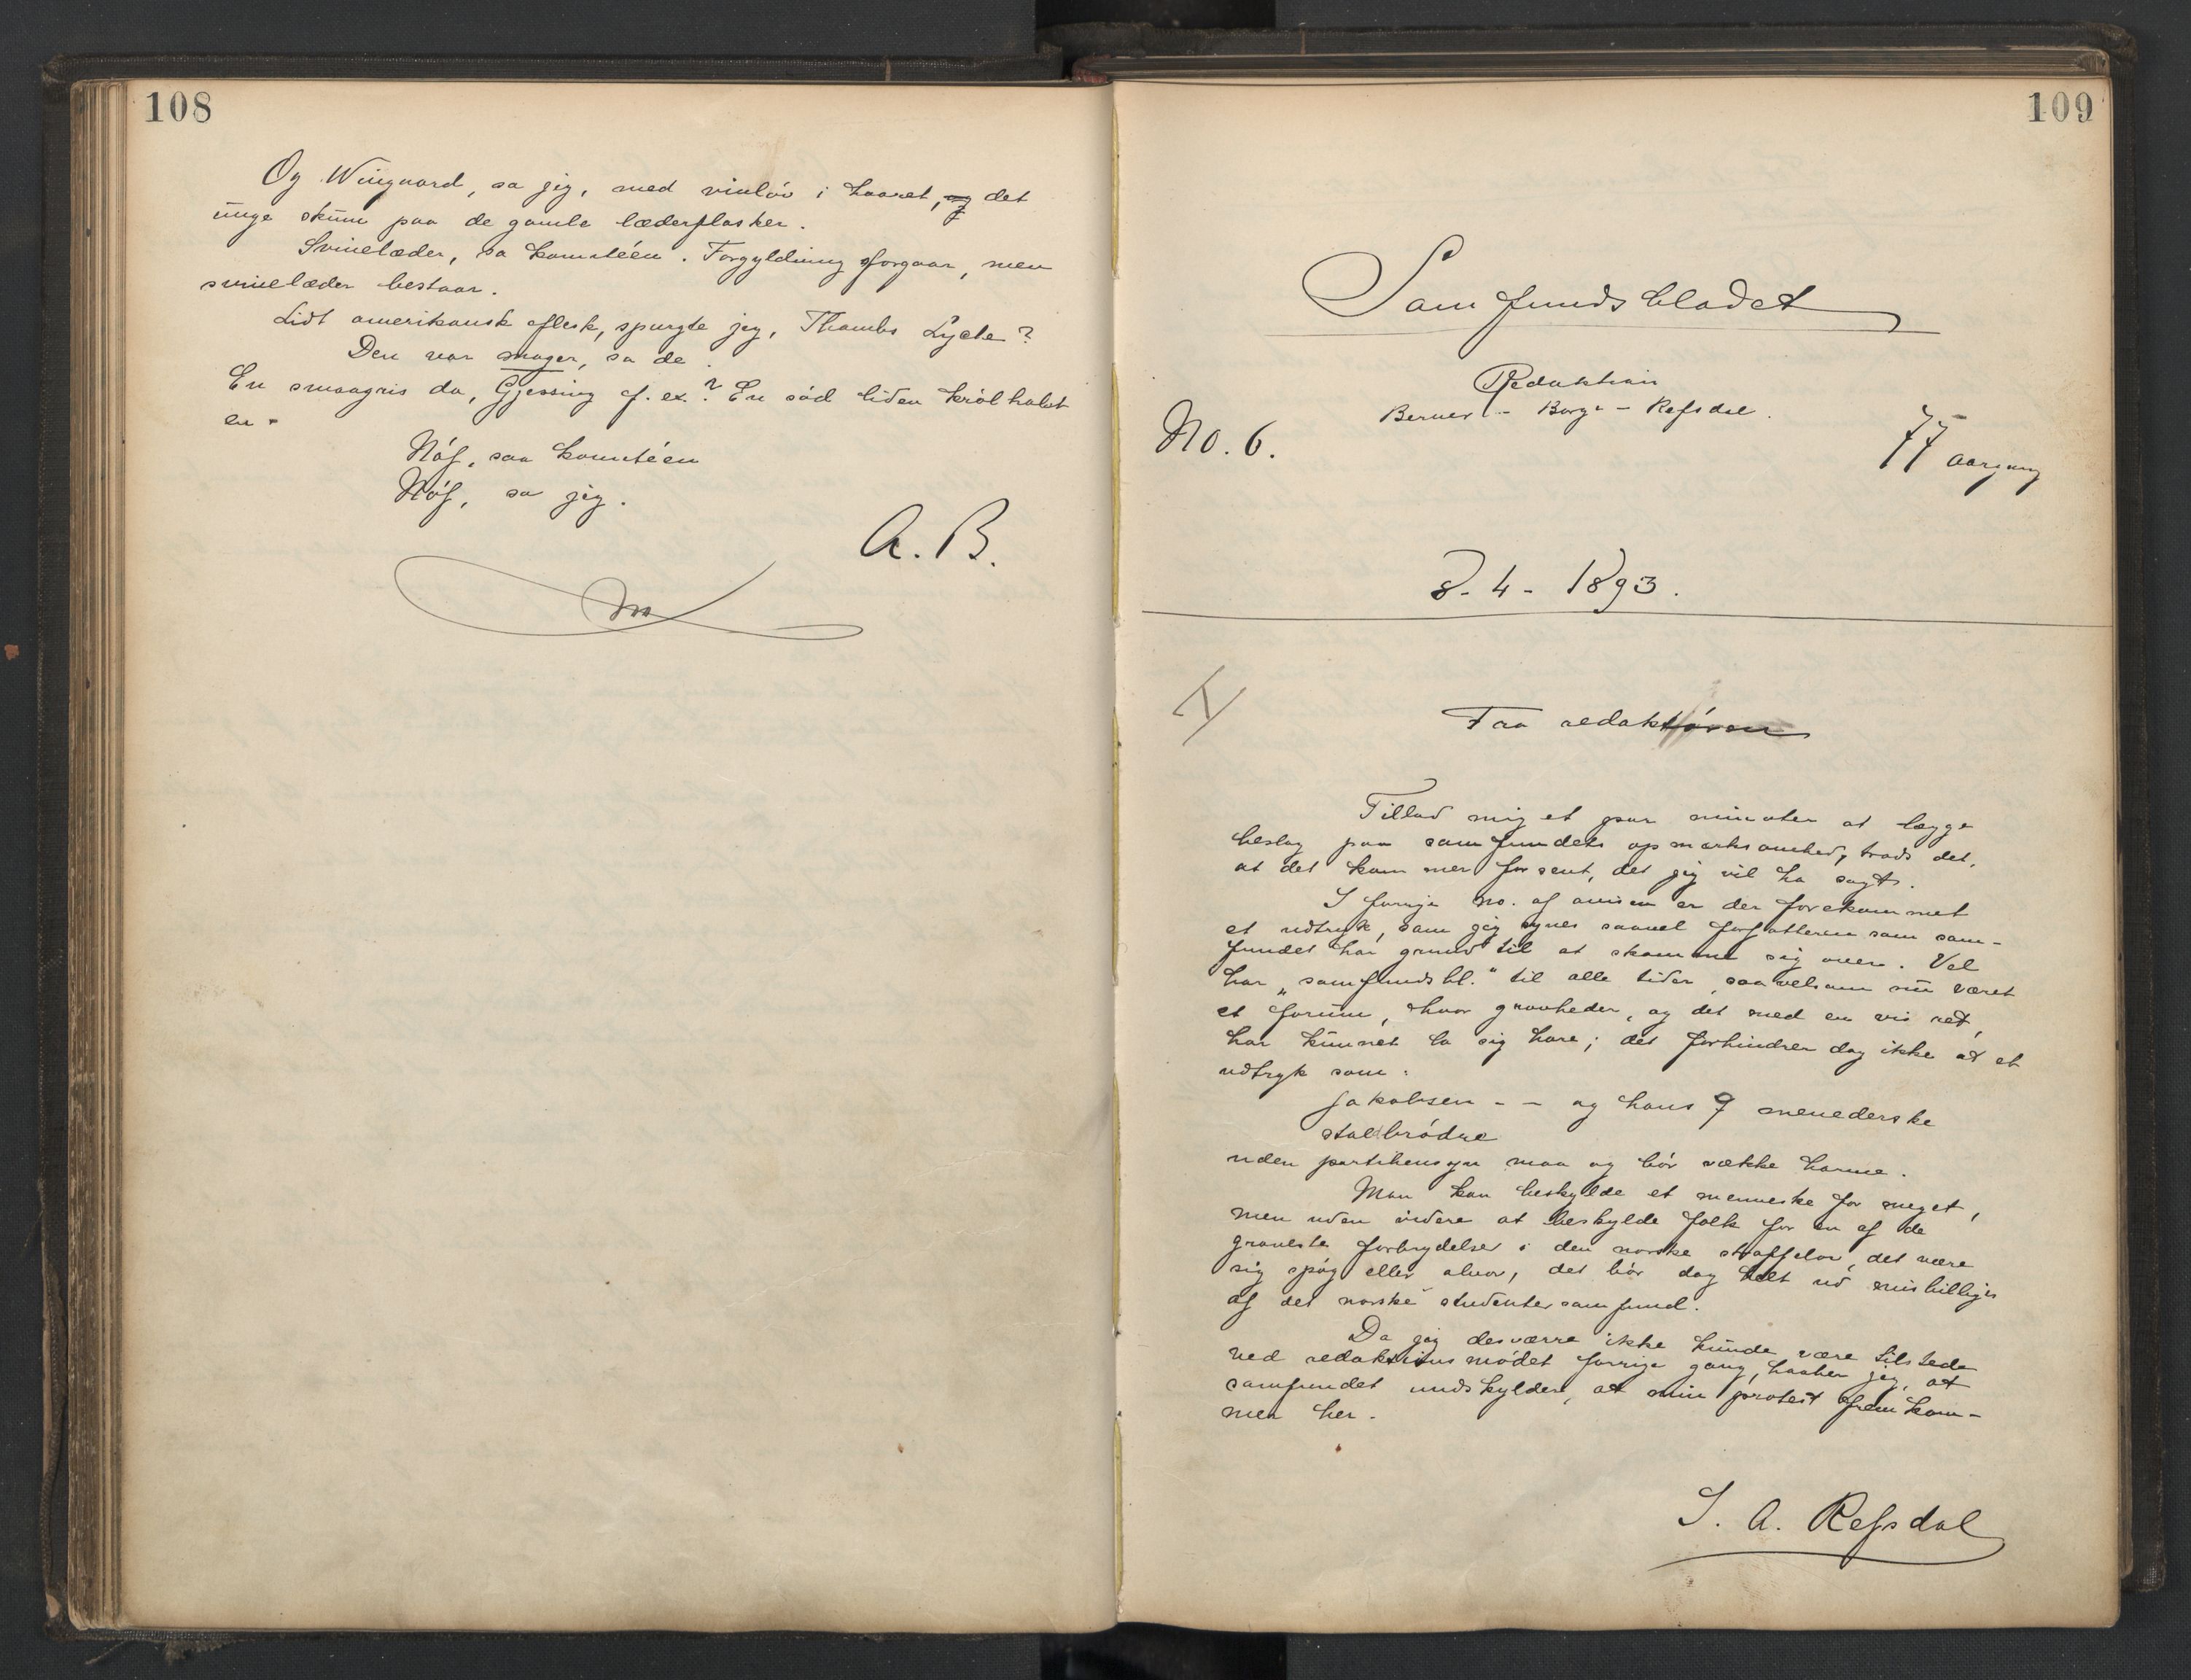 108
Og Wiingaard, sa jeg, med vinløv i haaret, og det
unge skum paa de gamle læderflasker.
Svinelæder, sa komitéen. Forgyldning forgaar, men
svinelæder bestaar.
Lidt amerikansk flesk, spurgte jeg, Thambs Lyche?
Den var mager, sa de.
En smaagris da, Gjessing f. ex.? En sød liden krølhalet
en.
Nøf, saa komitéen
Nøf, sa jeg.
A. B.
109
Samfundsbladet
Redaktion
Berner - Borge - Refsdal.
No. 6.
77 aargang
8-4-1893.
Fra redaktøren
Tillad mig et par minuter at lægge
beslag paa samfundets opmærksomhed, trods det,
at det kommer for sent, det jeg vil ha sagt.
I forrige no. af avisen er der forekommet
et udtryk, som jeg synes saavel forfatteren som sam-
fundet har grund til at skamme sig over. Vel
har „samfundsbl." til alle tider, saavelsom nu været
et forum, hvor grovheder, og det med en vis ret,
har kunnet la sig høre; det forhindrer dog ikke at et
udtryk som:
Jakobsen - - og hans 7 menederske
stallbrødre
uden partihensyn maa og bør vække harme.
Man kan beskylde et menneske for meget,
men uden videre at beskylde folk for en af de
groveste forbrydelser i den norske straffelov, det være
sig spøg eller alvor, det bør dog helt ud misbilliges
af det norske studentersamfund.
Da jeg desværre ikke kunde være tilstede
ved redaktionsmødet forrige gang, haaber jeg, at
samfundet undskylder, at min protest frem kom-
mer her.
I. A. Refsdal